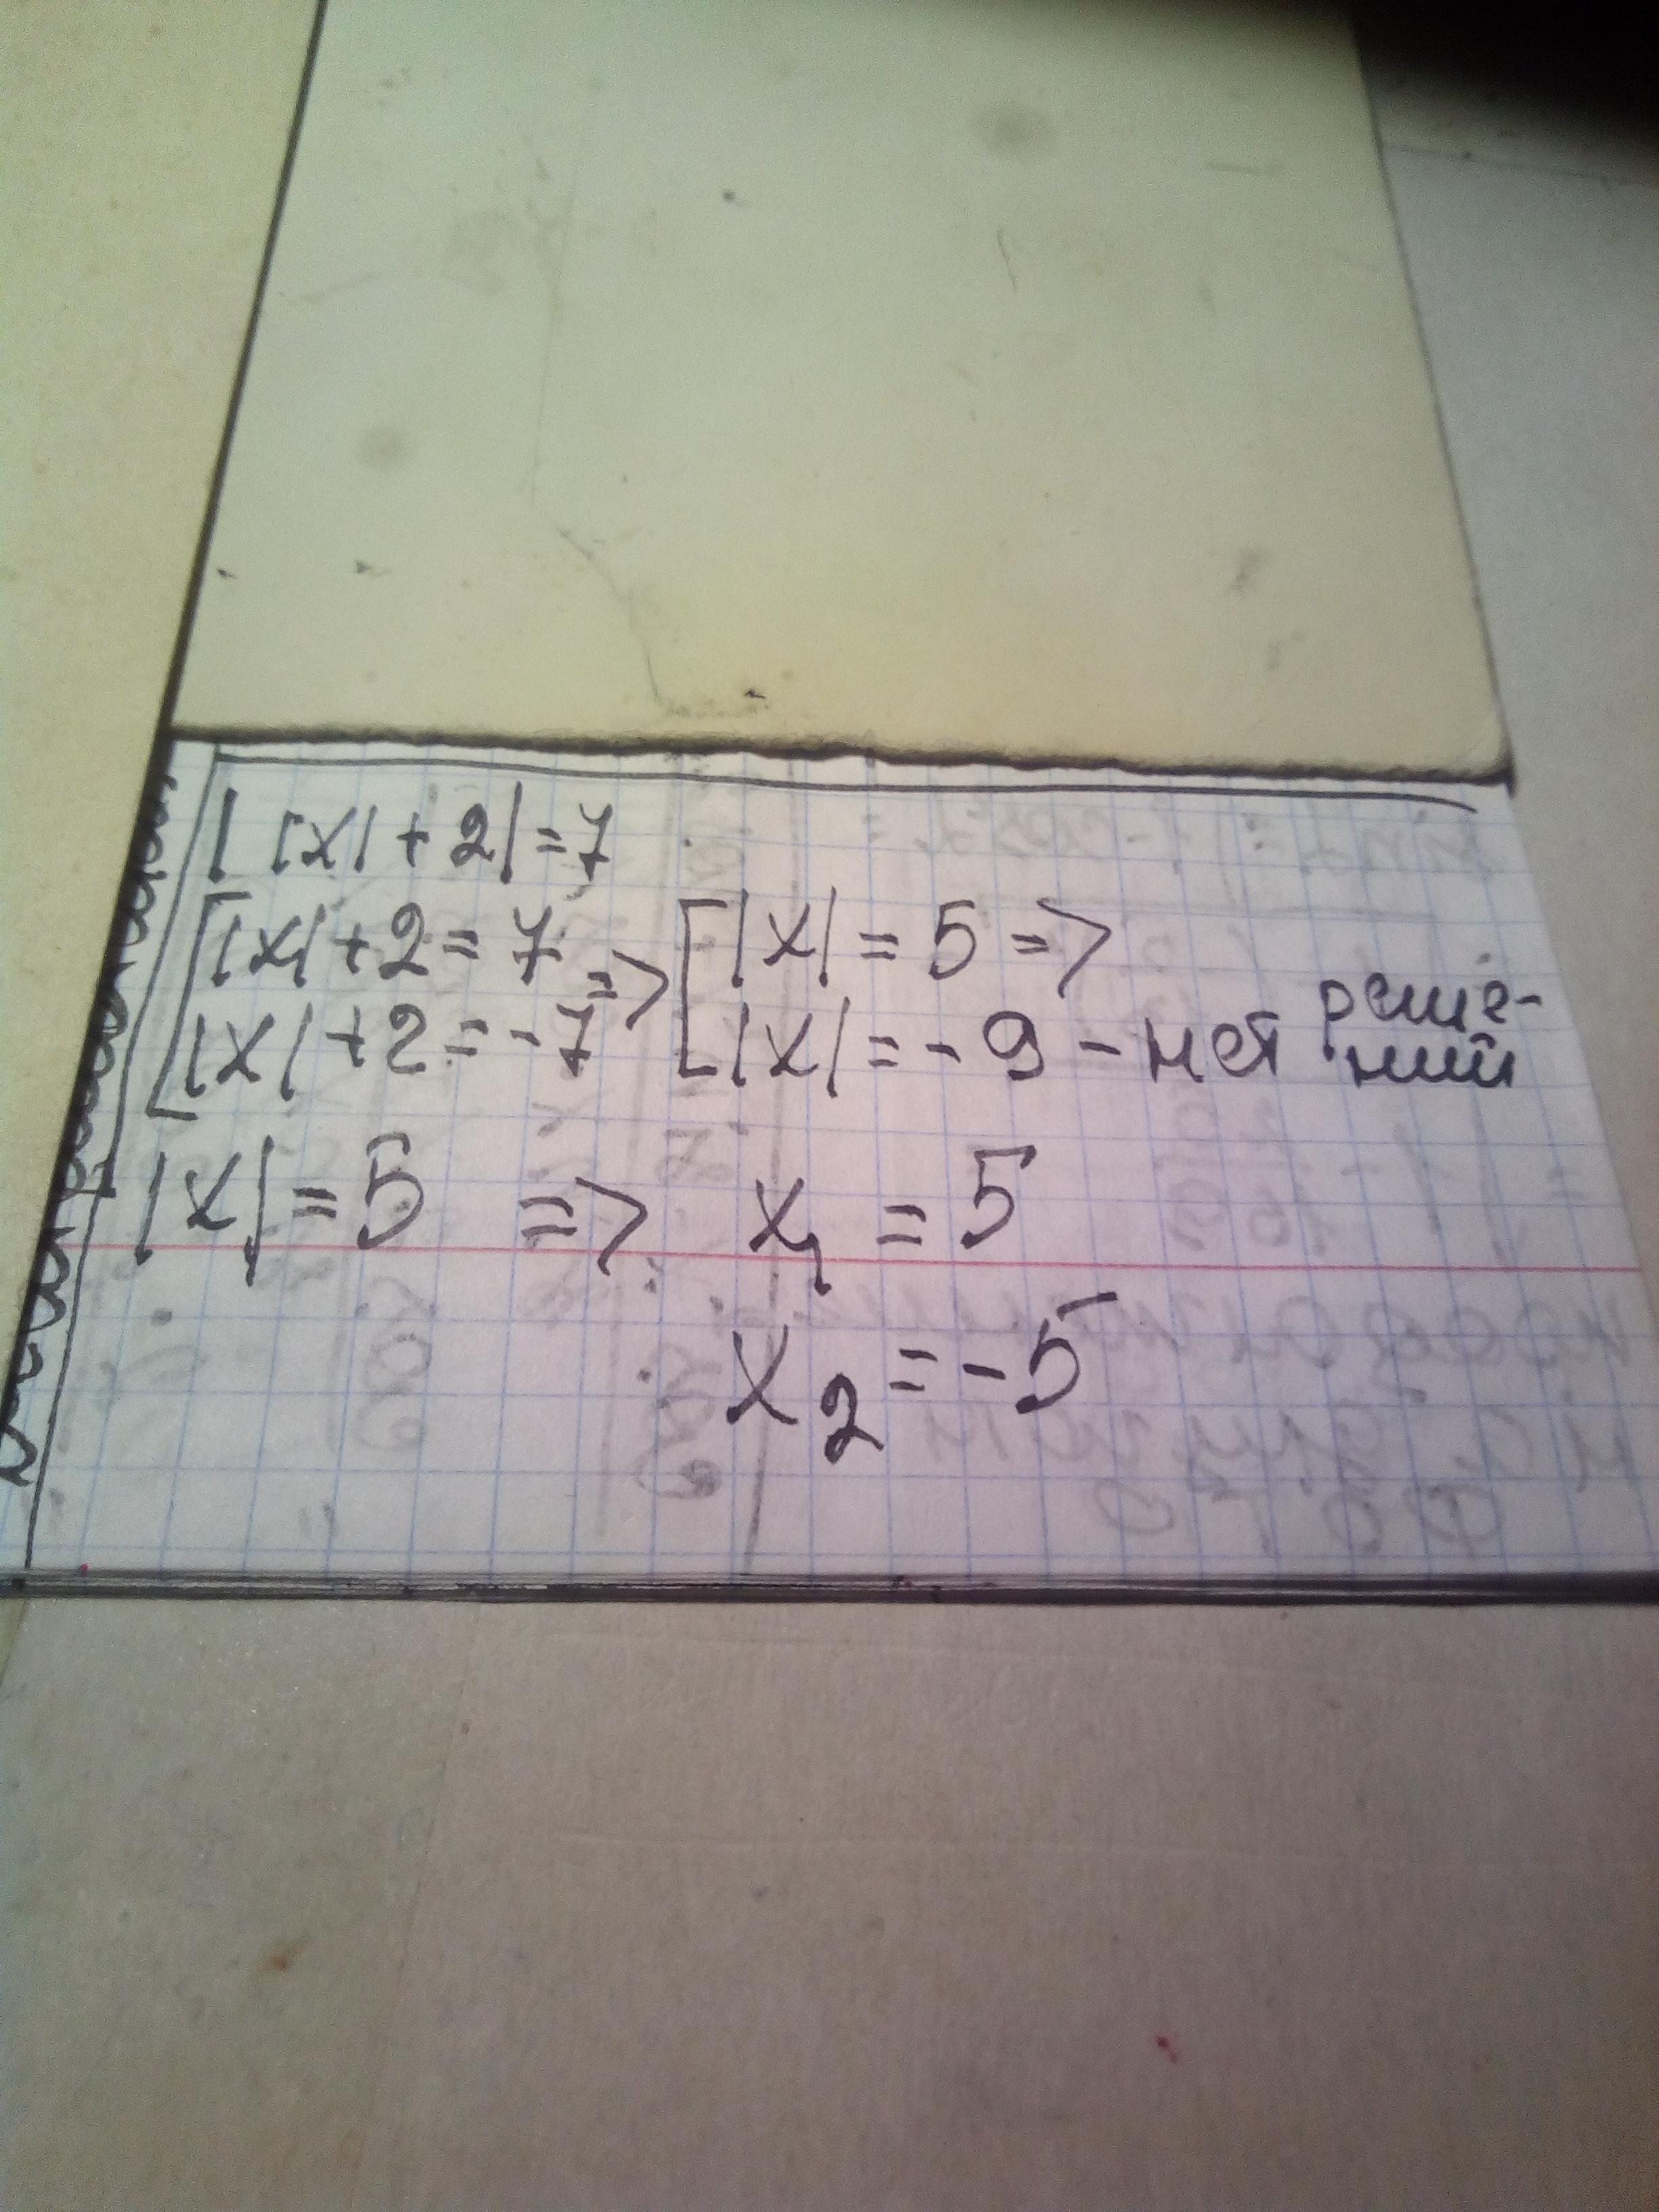 | |x| + 2| = 7
[ |x| + 2 = 7 => [ |x| = 5 =>
|x| + 2 = -7 |x| = -9 - нет реше-
ний
|x| = 5 => x₁ = 5
x₂ = -5